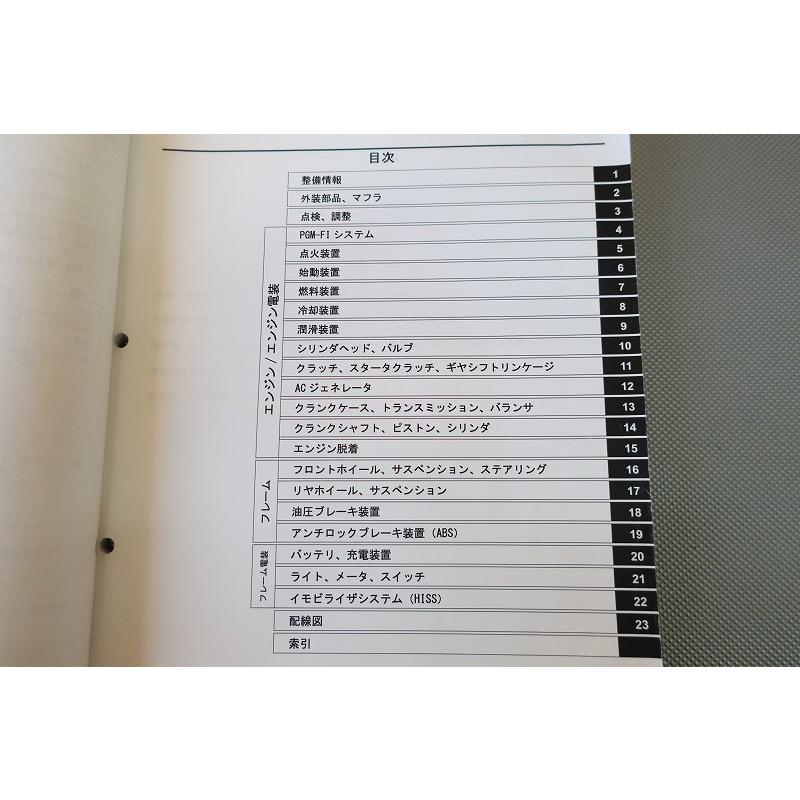 目次
整備情報 1
外装部品、マフラ 2
点検、調整 3
エンジン/エンジン電装
PGM-FI システム 4
点火装置 5
始動装置 6
燃料装置 7
冷却装置 8
潤滑装置 9
シリンダヘッド、バルブ 10
クラッチ、スタータクラッチ、ギヤシフトリンケージ 11
AC ジェネレータ 12
クランクケース、トランスミッション、バランサ 13
クランクシャフト、ピストン、シリンダ 14
エンジン脱着 15
フレーム
フロントホイール、サスペンション、ステアリング 16
リヤホイール、サスペンション 17
油圧ブレーキ装置 18
アンチロックブレーキ装置 (ABS) 19
フレーム電装
バッテリ、充電装置 20
ライト、メータ、スイッチ 21
イモビライザシステム (HISS) 22
配線図 23
索引